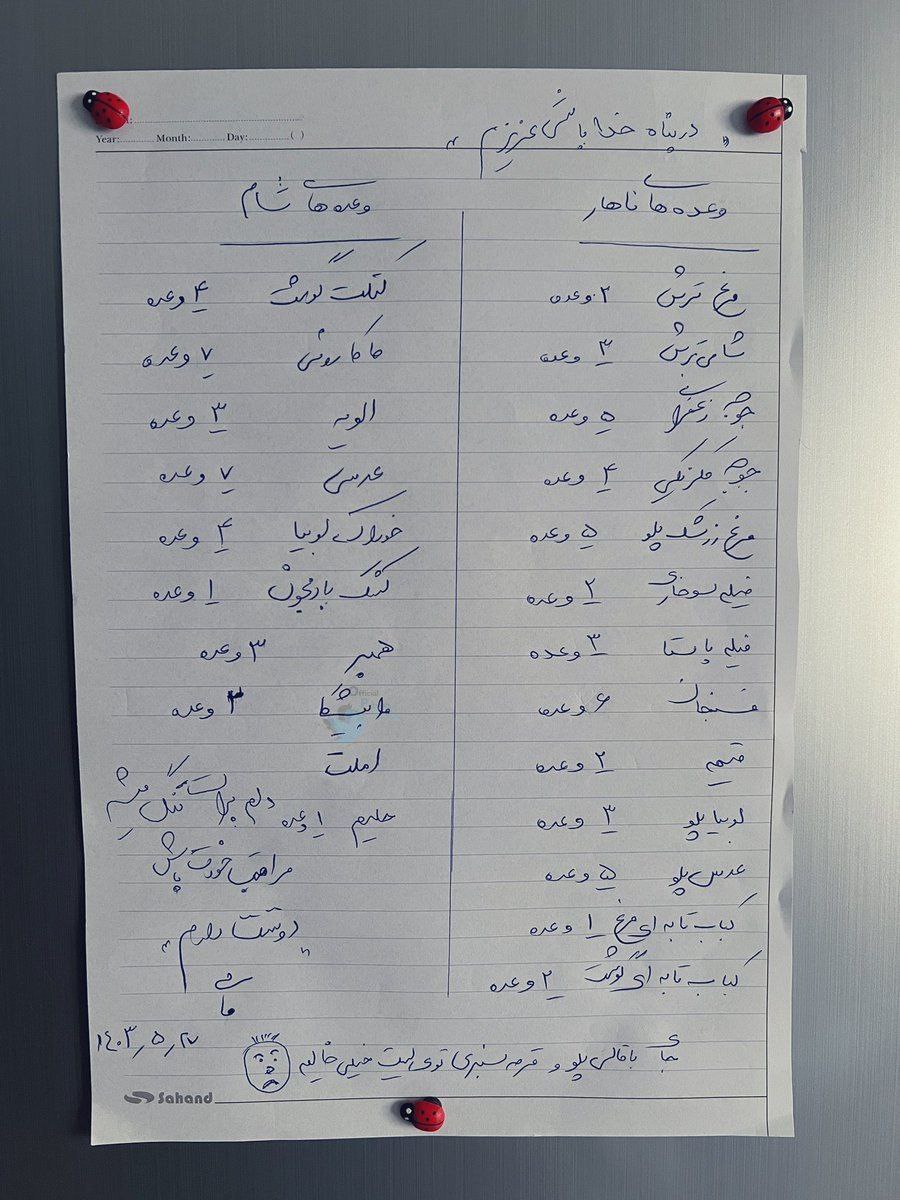 Year:.......... Month:.......... Day:............( )
" در پناه خدا باشی عزیزم "
وعده های ناهار
مرغ ترش ۲ وعده
شامی ترش ۳ وعده
جوجه زعفرانی ۵ وعده
جوجه مکزیکی ۴ وعده
مرغ زرشک پلو ۵ وعده
فیله سوخاری ۲ وعده
فیله پاستا ۳ وعده
فسنجان ۶ وعده
قیمه ۲ وعده
لوبیا پلو ۳ وعده
عدس پلو ۵ وعده
کباب تابه ای مرغ ۱ وعده
کباب تابه ای گوشت ۲ وعده
وعده های شام
کتلت گوشت ۴ وعده
ماکارونی ۷ وعده
الویه ۳ وعده
عدسی ۷ وعده
خوراک لوبیا ۴ وعده
کشک بادمجون ۱ وعده
همبر ۳ وعده
وعده
املت
حلیم ۱ وعده
دلم برات تنگ میشه
مراقب خودت باش
" دوستت دارم "
جای باقالی پلو و قرمه سبزی توی لیست خیلی خالیه
۱۴۰۳٫۵٫۲۷
Sahand